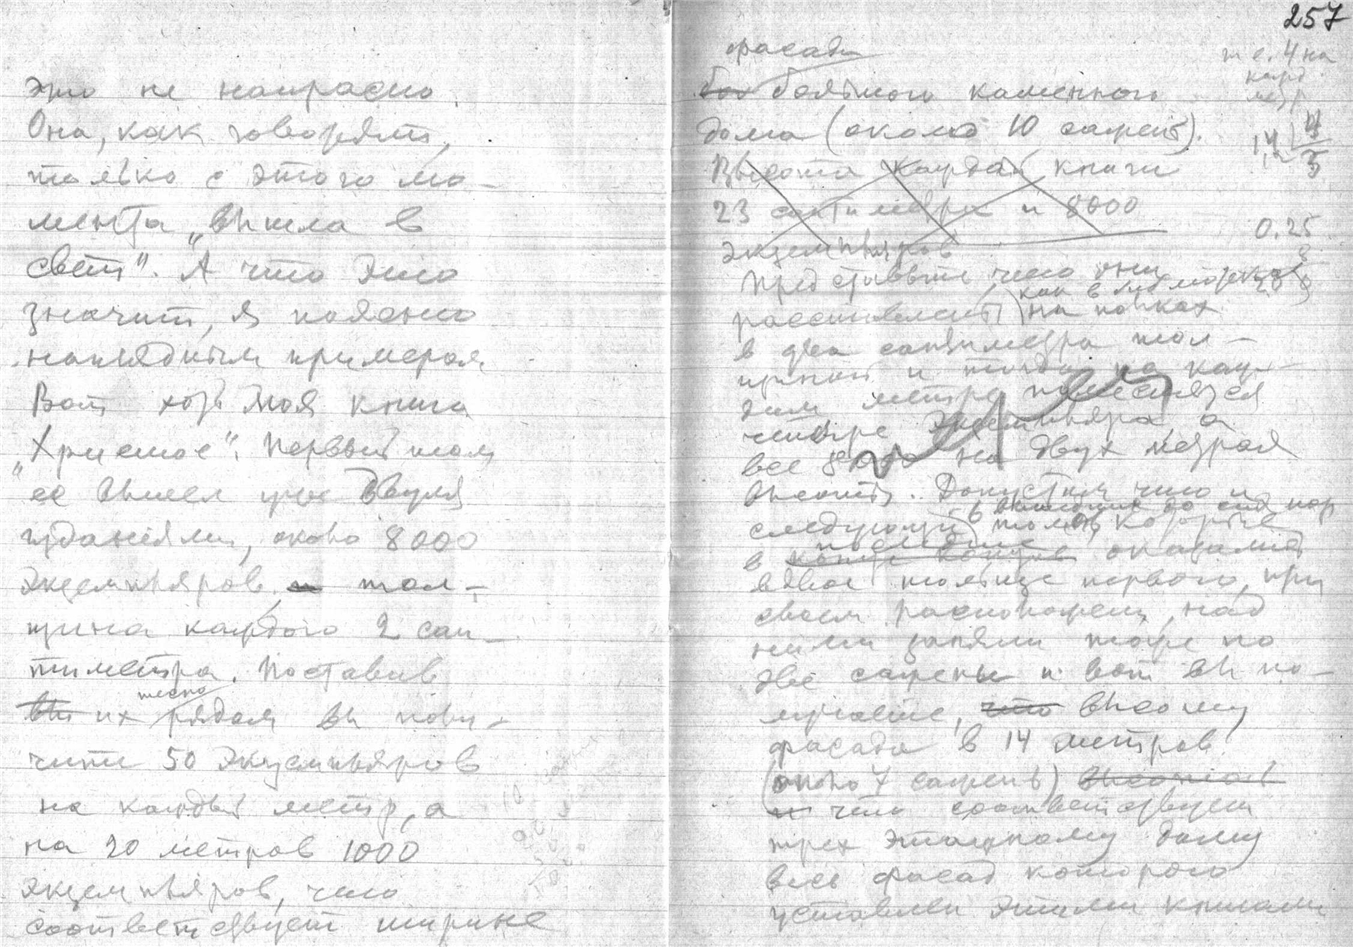 это не напрасно.
Она, как говорят,
только с этого мо-
мента „вышла в
свет". А что это
значит, я поясню
наглядным примером
Вот хоть моя книга
„Христос". Первый том
ее вышел уже двумя
изданиями, около 8000
экземпляров, и тол-
щина каждого 2 сан-
тиметра. Поставив
тесно
вы их рядом вы полу-
чите 50 экземпляров
на каждый метр, а
на 20 метров 1000
экземпляров, что
соответствует ширине
257
фасада
большого каменного
дома (около 10 сажень).
Высота каждой книги
23 сантиметра и 8000
экземпляров
Представьте, что они
как в библиотеках
расставлены на полках
в два сантиметра тол-
щиной и тогда на каж-
дом метре поместятся
четыре экземпляра, а
все 8000 на двух метрах
высоты. Допустим что и
вышедших до сих пор
следующих томов, которые
последние
в конце концов оказались
вдвое тольще первого, при
своем расположен. над
ними заняли тоже по
две сажены и вот вы по-
лучаете, что высоту
фасада в 14 метров
(около 7 сажень)
что соответствует
трех этажному дому
весь фасад которого
уставлен этими книгами
т.е. 4 на
0.25